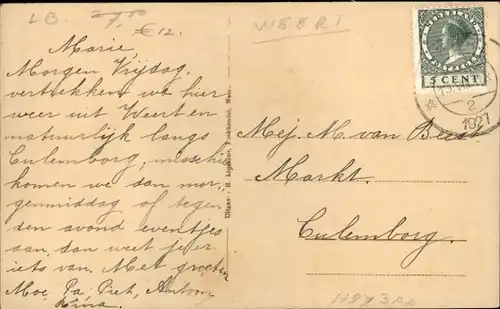 LB
€ 12.
WEERT
Marie,
Morgen Vrijdag,
vertrekken we hier
weer uit Weert en
natuurlijk langs
Culemborg, misschie
komen we dan mor-
genmiddag of tegen
den avond eventjes
aan, dan weet je er
iets van. Met groeten
Moe, Pa, Piet, Antoon
Rina.
NEDERLAND
5 CENT
2
1927
Mej. M. van Beest
Markt.
Culemborg.